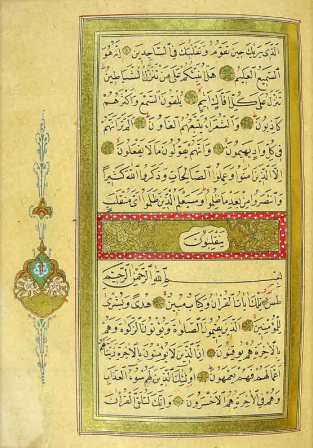 الذى يريك حين تقوم وتقلبك فى الساجدين انه هو
السميع العليم هل انبئكم على من تنزل الشياطين
تنزل على كل افاك اثيم يلقون السمع واكثرهم
كاذبون والشعراء يتبعهم الغاون الم تر انهم
فى كل واد يهيمون وانهم يقولون ما لا يفعلون
الا الذين امنوا وعملوا الصالحات وذكروا الله كثيرا
وانتصروا من بعد ما ظلموا وسيعلم الذين ظلموا اى منقلب
ينقلبون
بسم الله الرحمن الرحيم
طس تلك ايات القران وكتاب مبين هدى وبشرى
للمؤمنين الذين يقيمون الصلوة ويؤتون الزكوة وهم
بالاخرة هم يوقنون ان الذين لا يؤمنون بالاخرة زينا لهم
اعمالهم فهم يعمهون اولئك الذين لهم سوء العذاب
وهم فى الاخرة هم الاخسرون وانك لتلقى القران